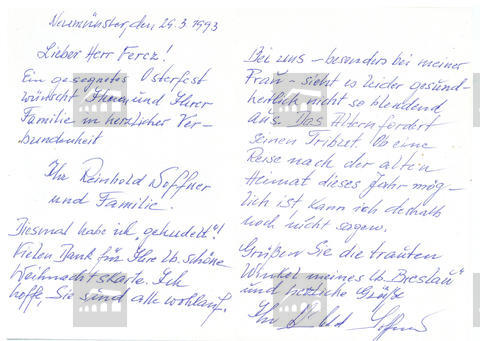 Neumünster, den 29.3.1993
Lieber Herr Fercz!
Ein gesegnetes Osterfest
wünscht Ihnen und Ihrer
Familie in herzlicher Ver-
bundenheit
Ihr Reinhold
und Familie.
Diesmal habe ich "gehudelt"!
Vielen Dank für Ihre lb. schöne
Weihnachtskarte. Ich
hoffe, Sie sind alle wohlauf.
Bei uns - besonders bei meiner
Frau - sieht es leider gesund-
heitlich nicht so blendend
aus. Das Altern fordert
seinen Tribut. Ob eine
Reise nach der alten
Heimat dieses Jahr mög-
lich ist kann ich deshalb
noch nicht sagen.
Grüßen Sie die trauten
Winkel meines lb. Breslau
und herzliche Grüße
Ihr